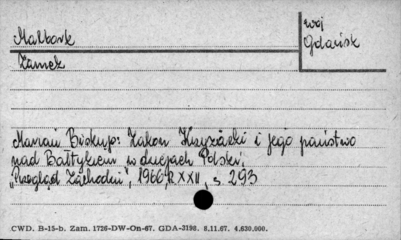 Malbork
woj
Gdańsk
Zamek
Marian Biskup: Zakon Krzyżacki i jego państwo
nad Bałtykiem w dziejach Polski,
„Przegląd Zachodni", 1966, R XXII, s. 293
CWD. B-15-b. Zam. 1726-DW-On-67. GDA-3192. 8.11.67. 4.630.000.